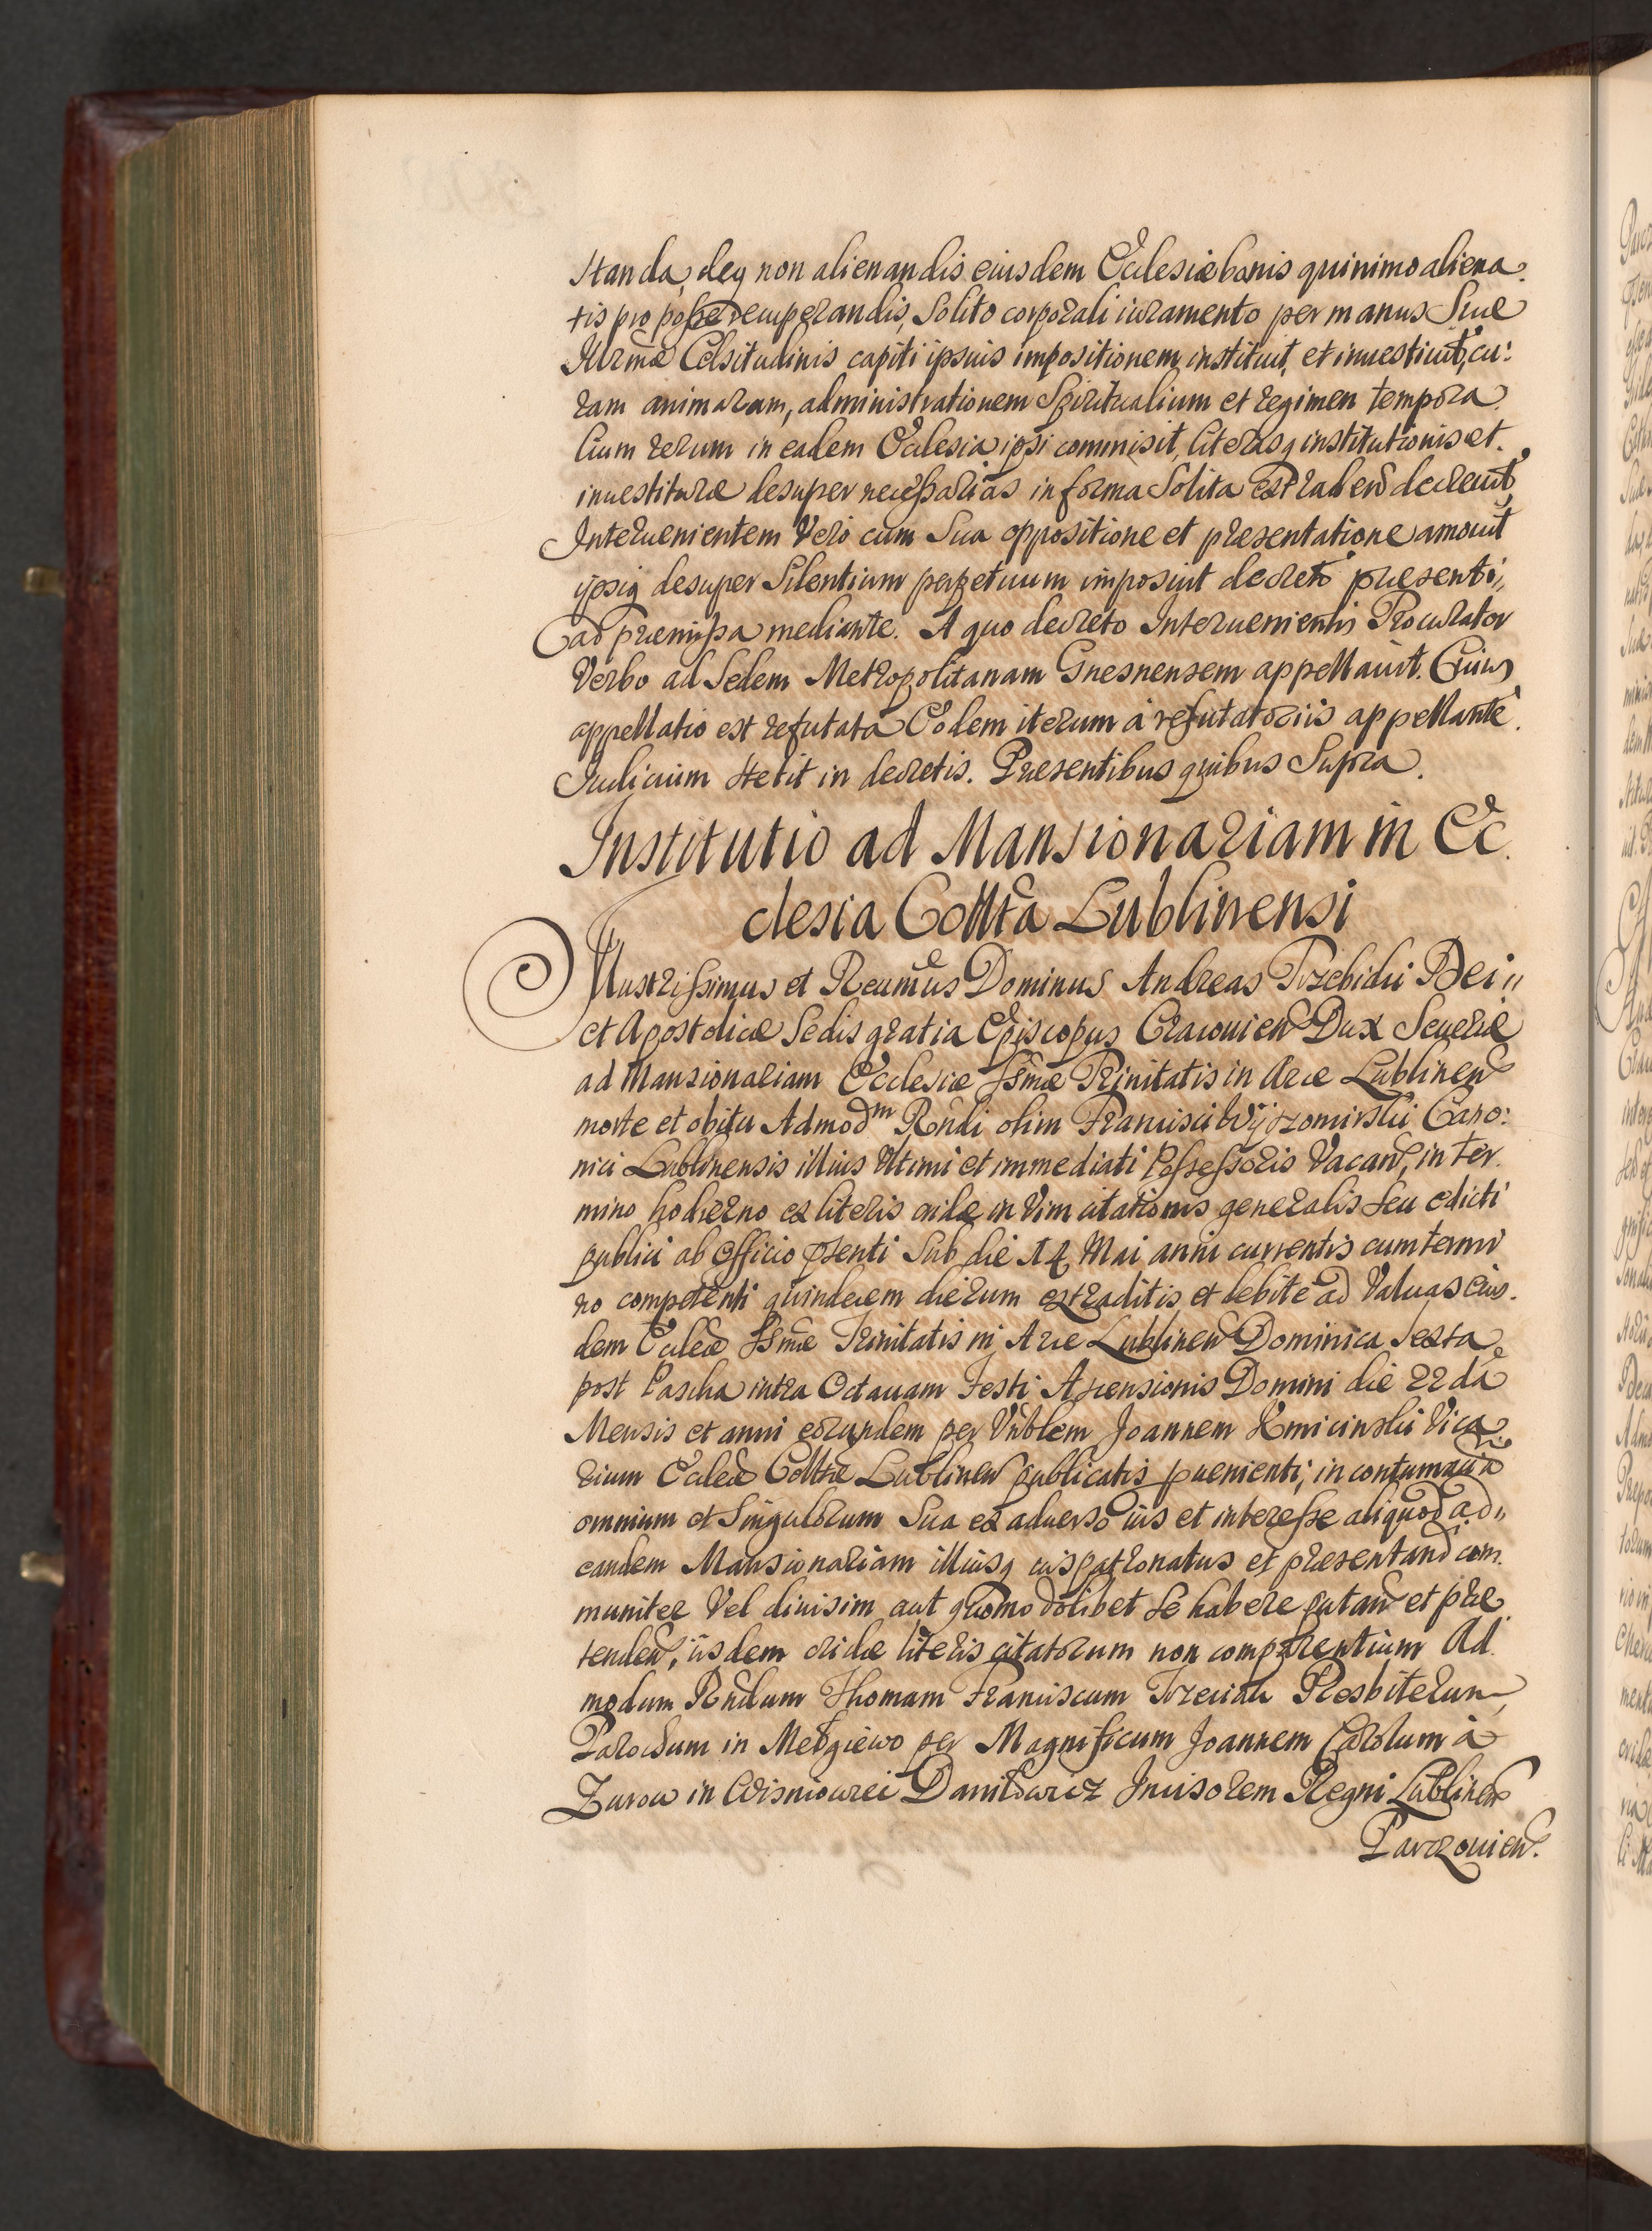 standa, deq non alienandis eiusdem Ecclesiæ bonis quinimo aliena
tis pro posse recuperandis, Solito corporali iuramento per manus Suæ
Illrmæ Celsitudinis capiti ipsuis impositionem instituit, et inuestiuit, cu:
ram animarum, administrationem Spiritualium et regimen tempora
lium rerum in eadem Ecclesia ipsi commisit, literasq institutionis et
inuestituræ desuper necessarias in forma Solita extraden decreuit
Interuenientem Vero cum Sua oppositione et presentatione amouit
ipsiq desuper Silentium perpetuum imposuit decreto præsenti,
ad præmissa mediante. A quo decreto Interuenientis Procurator
Verbo ad Sedem Metropolitanam Gnesnensem appellauit. Cuius
appellatio est refutata Eodem iterum a refutatoriis appellante.
Iudicium stetit in decretis. Præsentibus quibus Supra.
Institutio ad Mansionariam in Ec
clesia Colltta Lublinensi
Illustrissimus et Reumus Dominus Andreas Trzebicki Dei
et Apostolicæ Sedis gratia Episcopus Cracouien Dux Seueriæ
ad Mansionariam Ecclesiæ Ssmæ Trinitatis in Arce Lublinen
morte et obitu Admodm Rndi olim Francisci Wyszomirski Cano:
nici Lublinensis illius Vltimi et immediati Possessoris Vacan, in ter
mino hodierno ex literis cridæ in Vim citationis generalis seu edicti
publici ab Officio psenti Sub die 14 Mai anni currentis cum termi
no competenti quindecem dierum extraditis et debite ad Valuas eius
dem Eccleæ Ssmæ Trinitatis in Arce Lublinen Dominica Sexta
post Pascha intra Octauam Festi Ascensionis Domini die 22da
Mensis et anni eorundem per Vnblem Joannem Kmicinski Vica
rium Eccleæ Collttæ Lublinen publicatis puenienti, in contumaciã
omnium et Singulorum Sua ex aduerso ius et interesse aliquod ad
eandem Mansionariam illiusq iuspatronatus et præsentand com
muniter Vel diuisim aut quomodolibet se habere putan et præ
tenden, iisdem cridæ literis citatorum non comparentium Ad
modum Rndum Thomam Franciscum Trzeciak Presbiterum
Parochum in Metgiewo per Magnificum Joannem Carolum a
Zurow in Wisniowiei Danilowicz Incisorem Regni Lublinen
Parczouien.